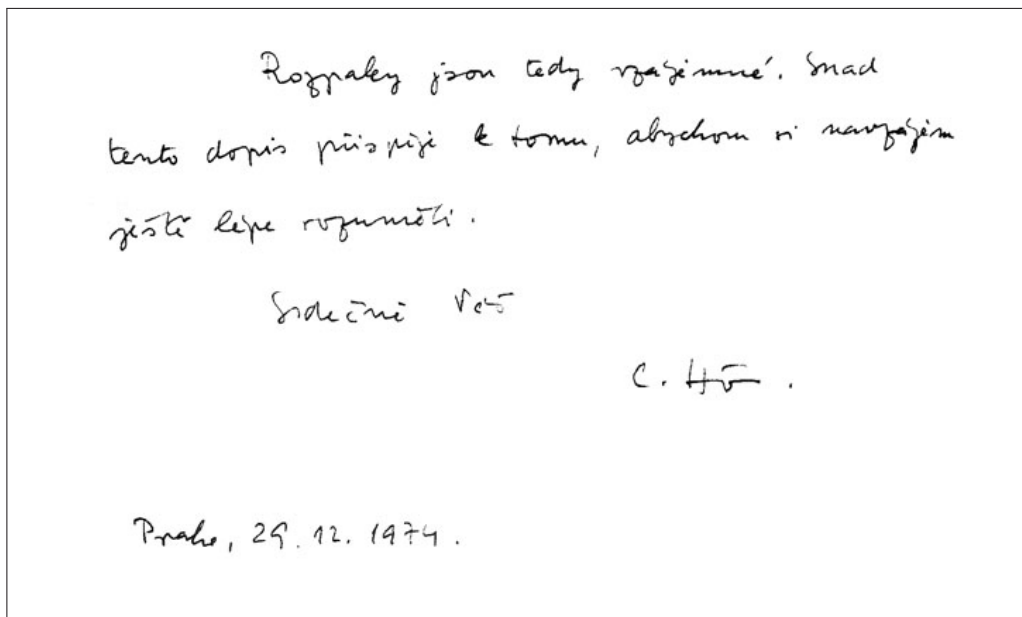 Rozpaky jsou tedy vzájemné. Snad
tento dopis přispěje k tomu, abychom si navzájem
ještě lépe rozuměli.
Srdečně Váš
C. Hö.
Praha, 29. 12. 1974.